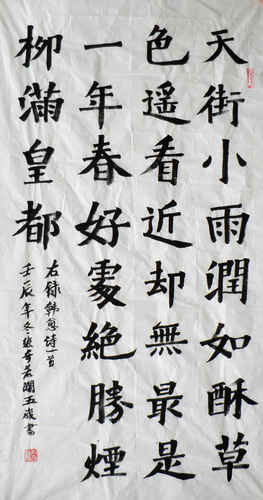 天街小雨潤如酥草
色遥看近却無最是
一年春好處絶勝煙
柳滿皇都
右録韓愈詩一首
壬辰年冬
五歲書